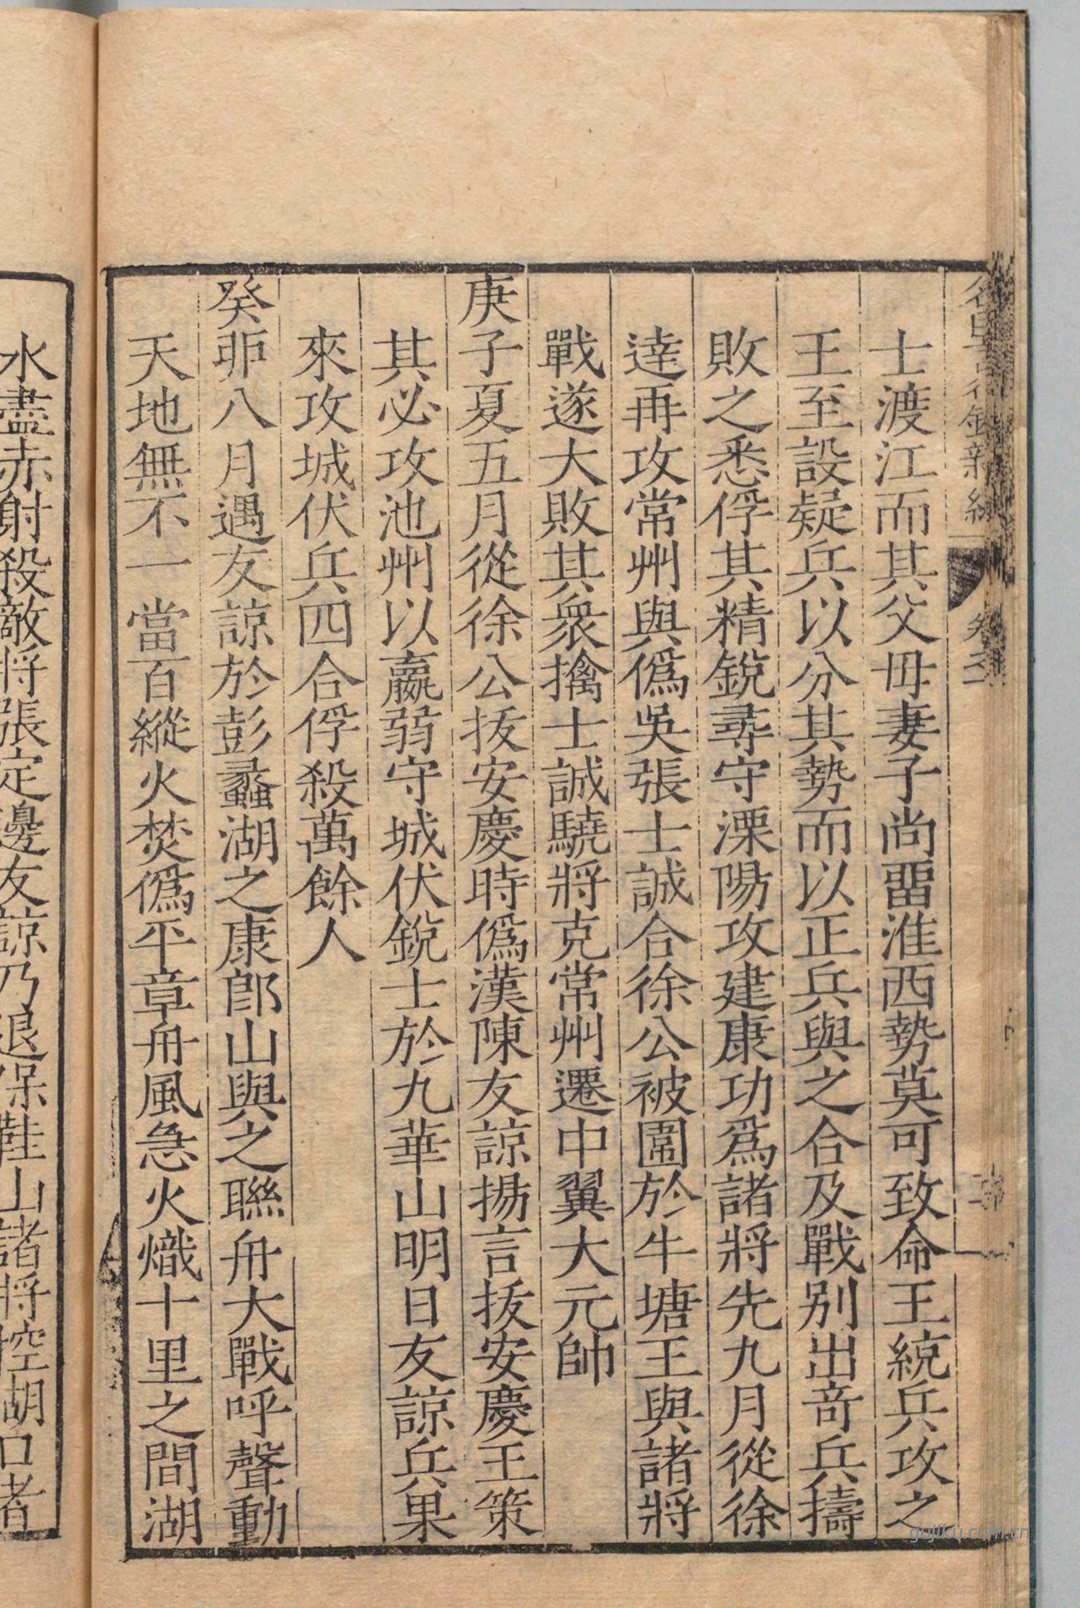 名臣言行錄新編 卷之二 二
士渡江而其父母妻子尚畱淮西勢莫可致命王統兵攻之
王至設疑兵以分其勢而以正兵與之合及戰別出奇兵擣
敗之悉俘其精銳尋守溧陽攻建康功爲諸將先九月從徐
達再攻常州與僞吳張士誠合徐公被圍於牛塘王與諸將
戰遂大敗其衆擒士誠驍將克常州遷中翼大元帥
庚子夏五月從徐公拔安慶時僞漢陳友諒揚言拔安慶王策
其必攻池州以羸弱守城伏銳士於九華山明日友諒兵果
來攻城伏兵四合俘殺萬餘人
癸丣八月遇友諒於彭蠡湖之康郎山與之聯舟大戰呼聲動
天地無不一當百縱火焚僞平章舟風急火熾十里之間湖
水盡赤射殺敵將張定邊友諒乃退保鞋山諸將控湖口者